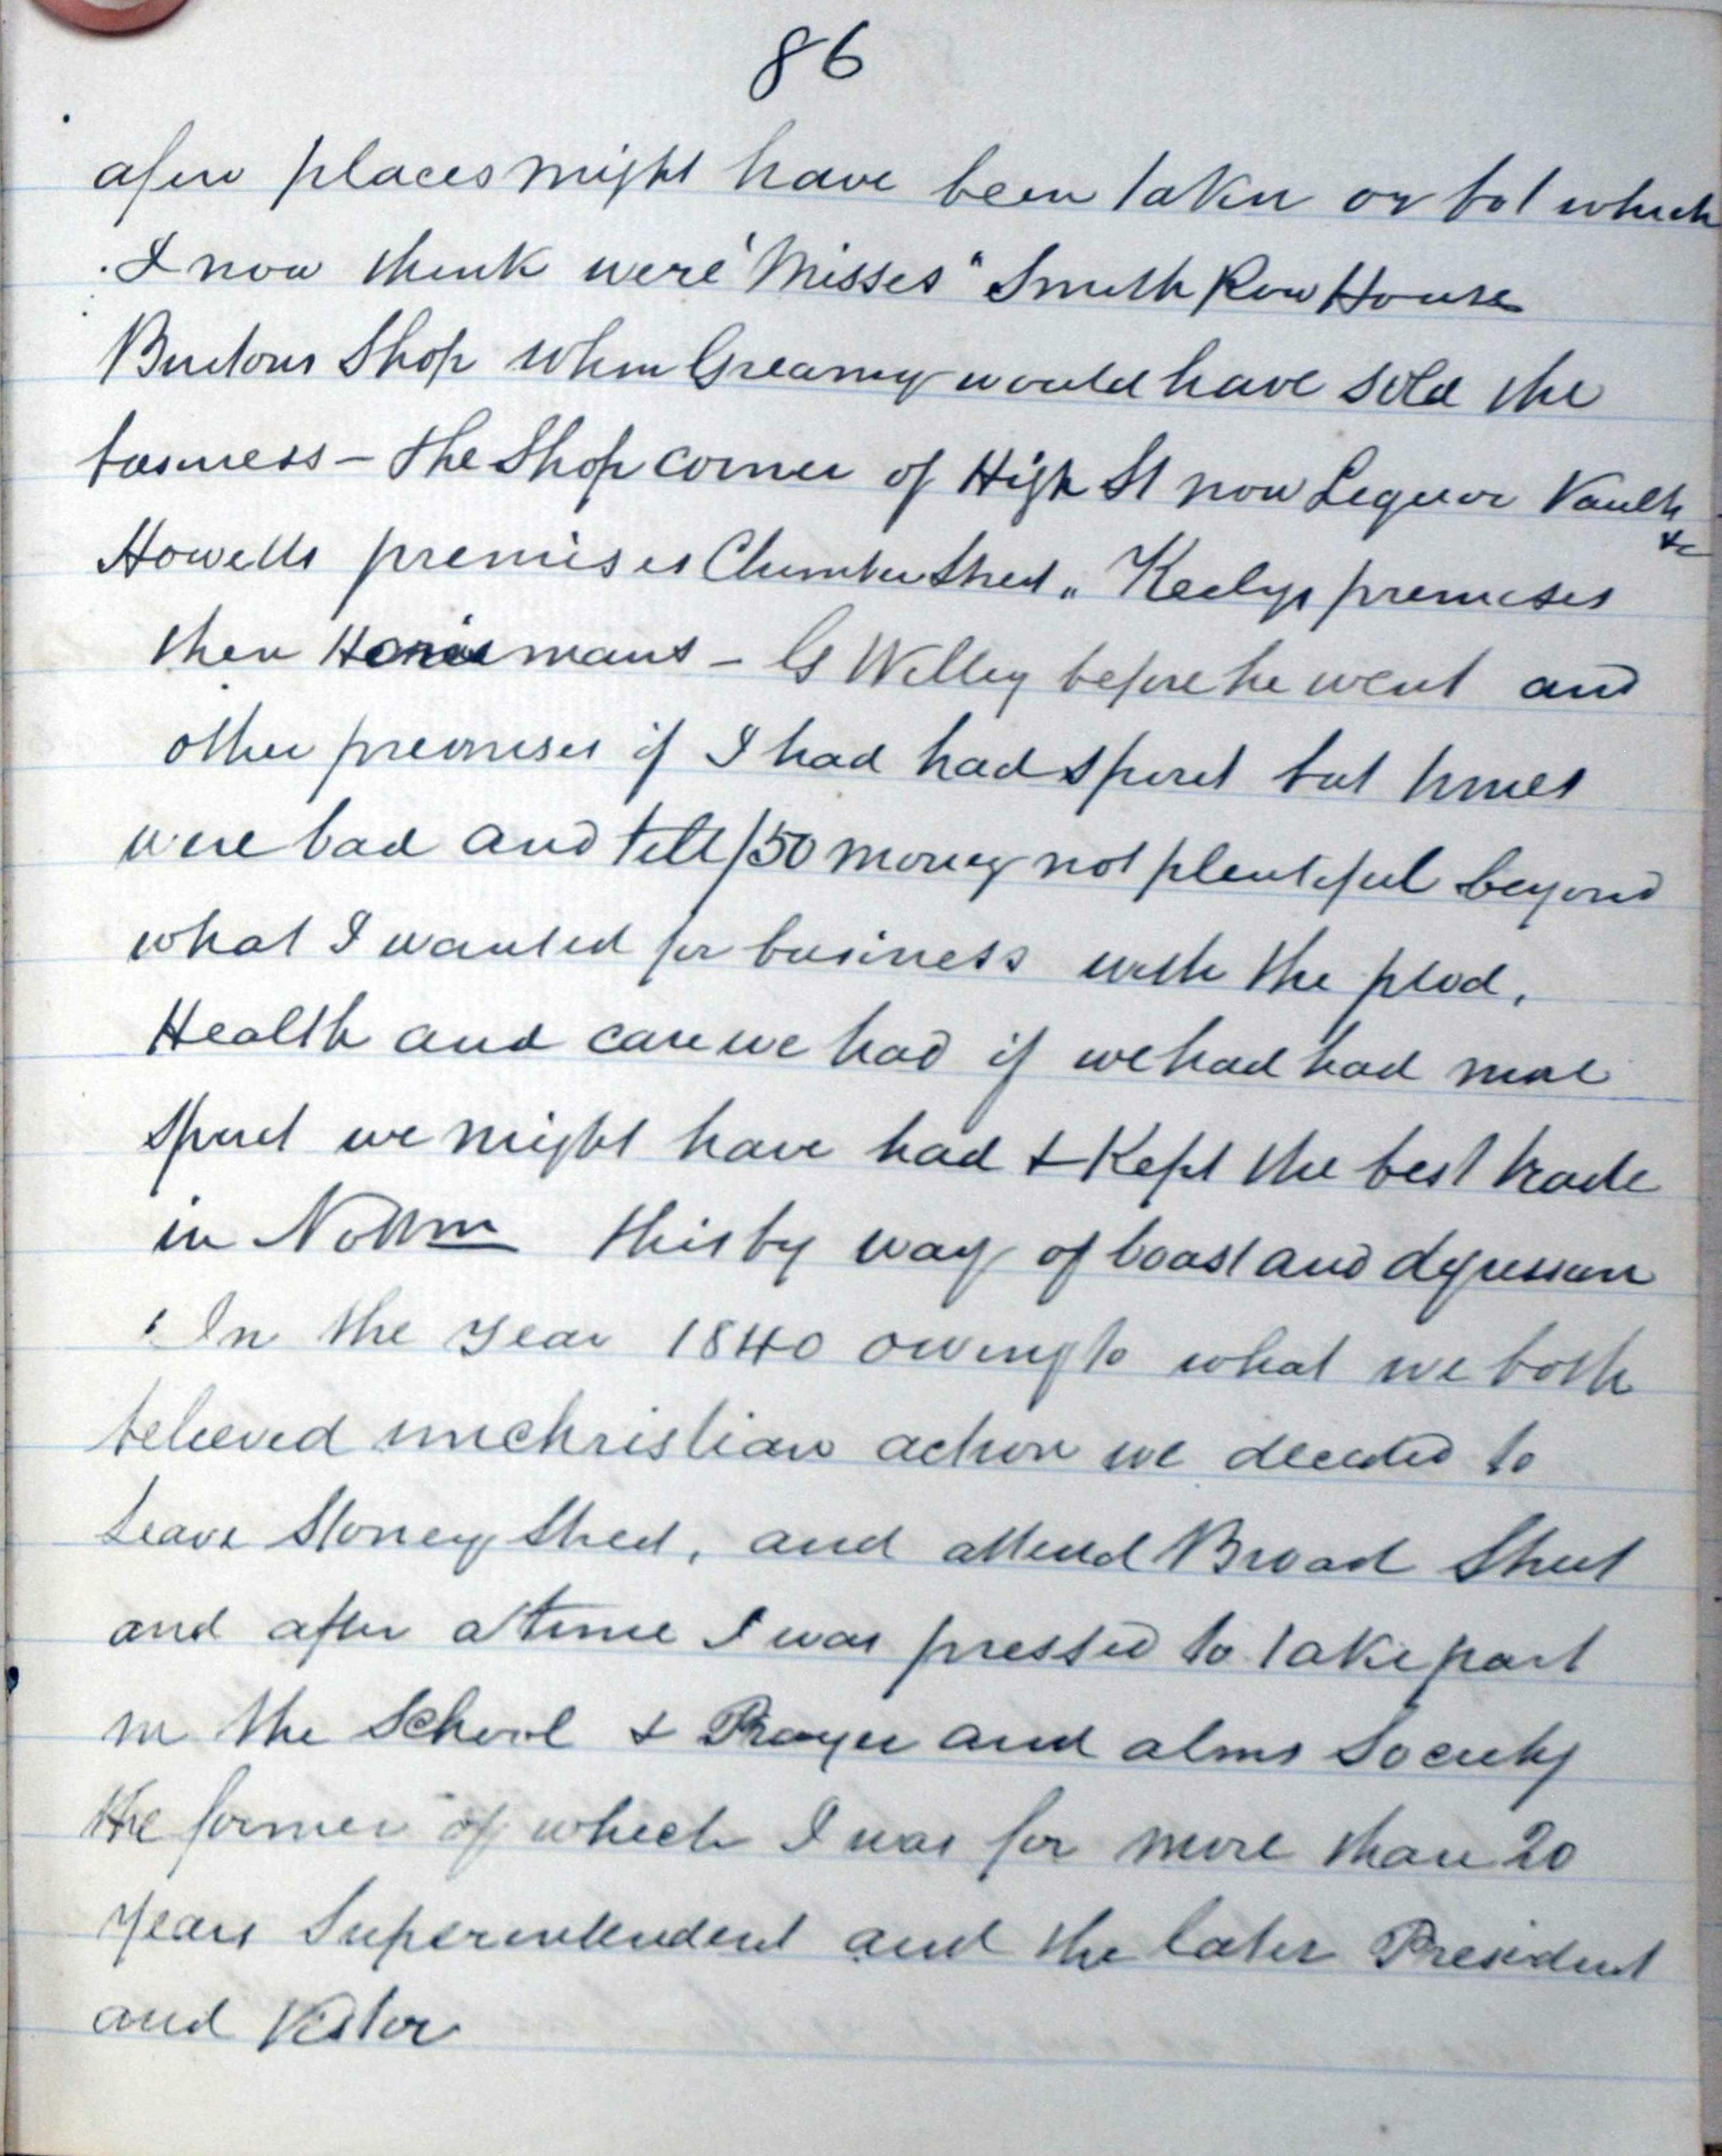 86
a few places might have been taken or bot which
I now think were "Misses" Smith Row House
Burtons Shop when Greamy would have sold the
business - The Shop corner of High St now Liquor Vaults &c
Howells premises Clumber Street " Keelys premises
then mans - G Willey before he went and
other premises if I had had spirit but times
were bad and till /50 money not plentiful beyond
what I wanted for business with the plod,
Health and care we had if we had had more
spirit we might have had & Kept the best trade
in Nottm this by way of boast and digression
In the year 1840 owing to what we both
believed unchristian action we decided to
Leave Stoney Street, and attend Broad Street
and after a time I was pressed to take part
in the School & Prayer and alms Society
the former of which I was for more than 20
years Superintendent and the later President
and Visitor